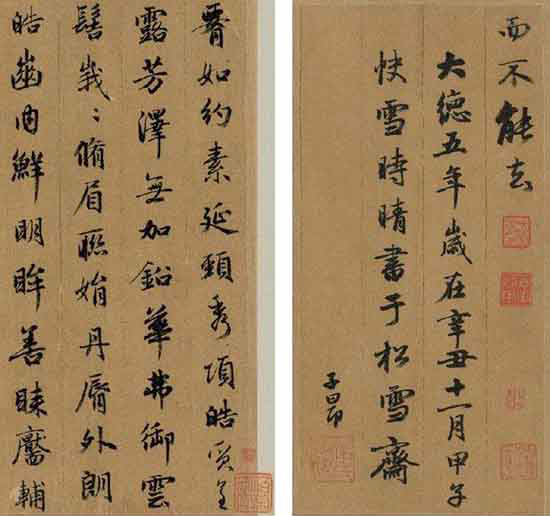 腰如約素延頸秀項皓質呈
露芳澤無加鉛華弗御雲
髻峩〻脩眉聯娟丹脣外朗
皓齒內鮮明眸善睞靨輔
而不能去
大德五年歲在辛丑十一月甲子
快雪時晴書于松雪齋
子昂